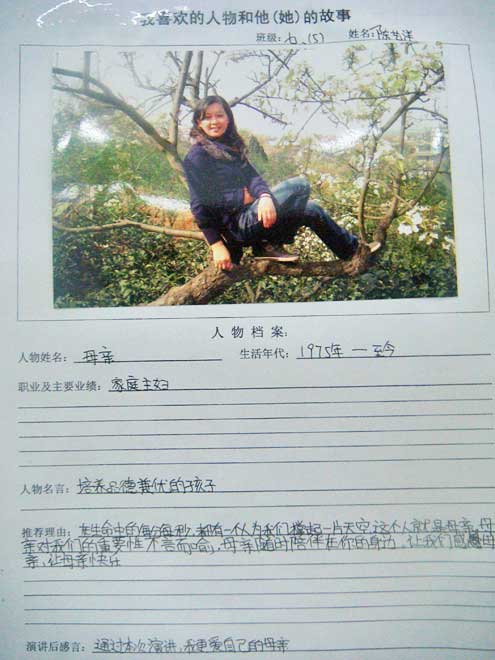 我喜欢的人物和他(她)的故事
班级: 七.(5) 姓名: 陈
人 物 档 案:
人物姓名: 母亲 生活年代: 1975年 — 至今
职业及主要业绩: 家庭主妇
人物名言: 培养品德兼优的孩子
推荐理由: 在生命中的每分每秒,都有一个人为我们撑起一片天空.这个人就是母亲,母
亲对我们的重要性不言而喻,母亲随时陪伴在你的身边.让我们感恩母
亲,让母亲快乐
演讲后感言: 通过本次演讲,我更爱自己的母亲